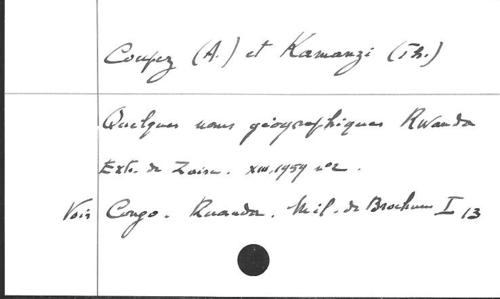 Coupez (A.) et Kamanzi (Th.)
Quelques noms géographiques Rwanda
Extr. de Zaïre. XIII. 1959 n°2.
Voir Congo. Ruanda. Mél. de Brochures I 13